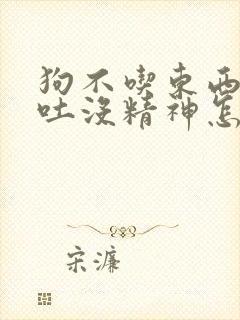 狗不喫東西
吐沒精神怎
宋濂